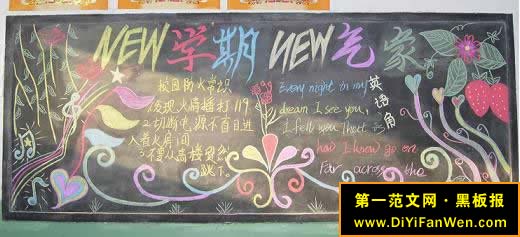 NEW学期 NEW气象
校园防火常识
1发现火情拨打119
2切断电源不盲目进
入着火房间
3不要从高楼突然
跳下。
Every night in my
dream I see you,
I fell you That is
how I know go on
Far across the
英语角
第一范文网·黑板报
www.DiYiFanWen.com